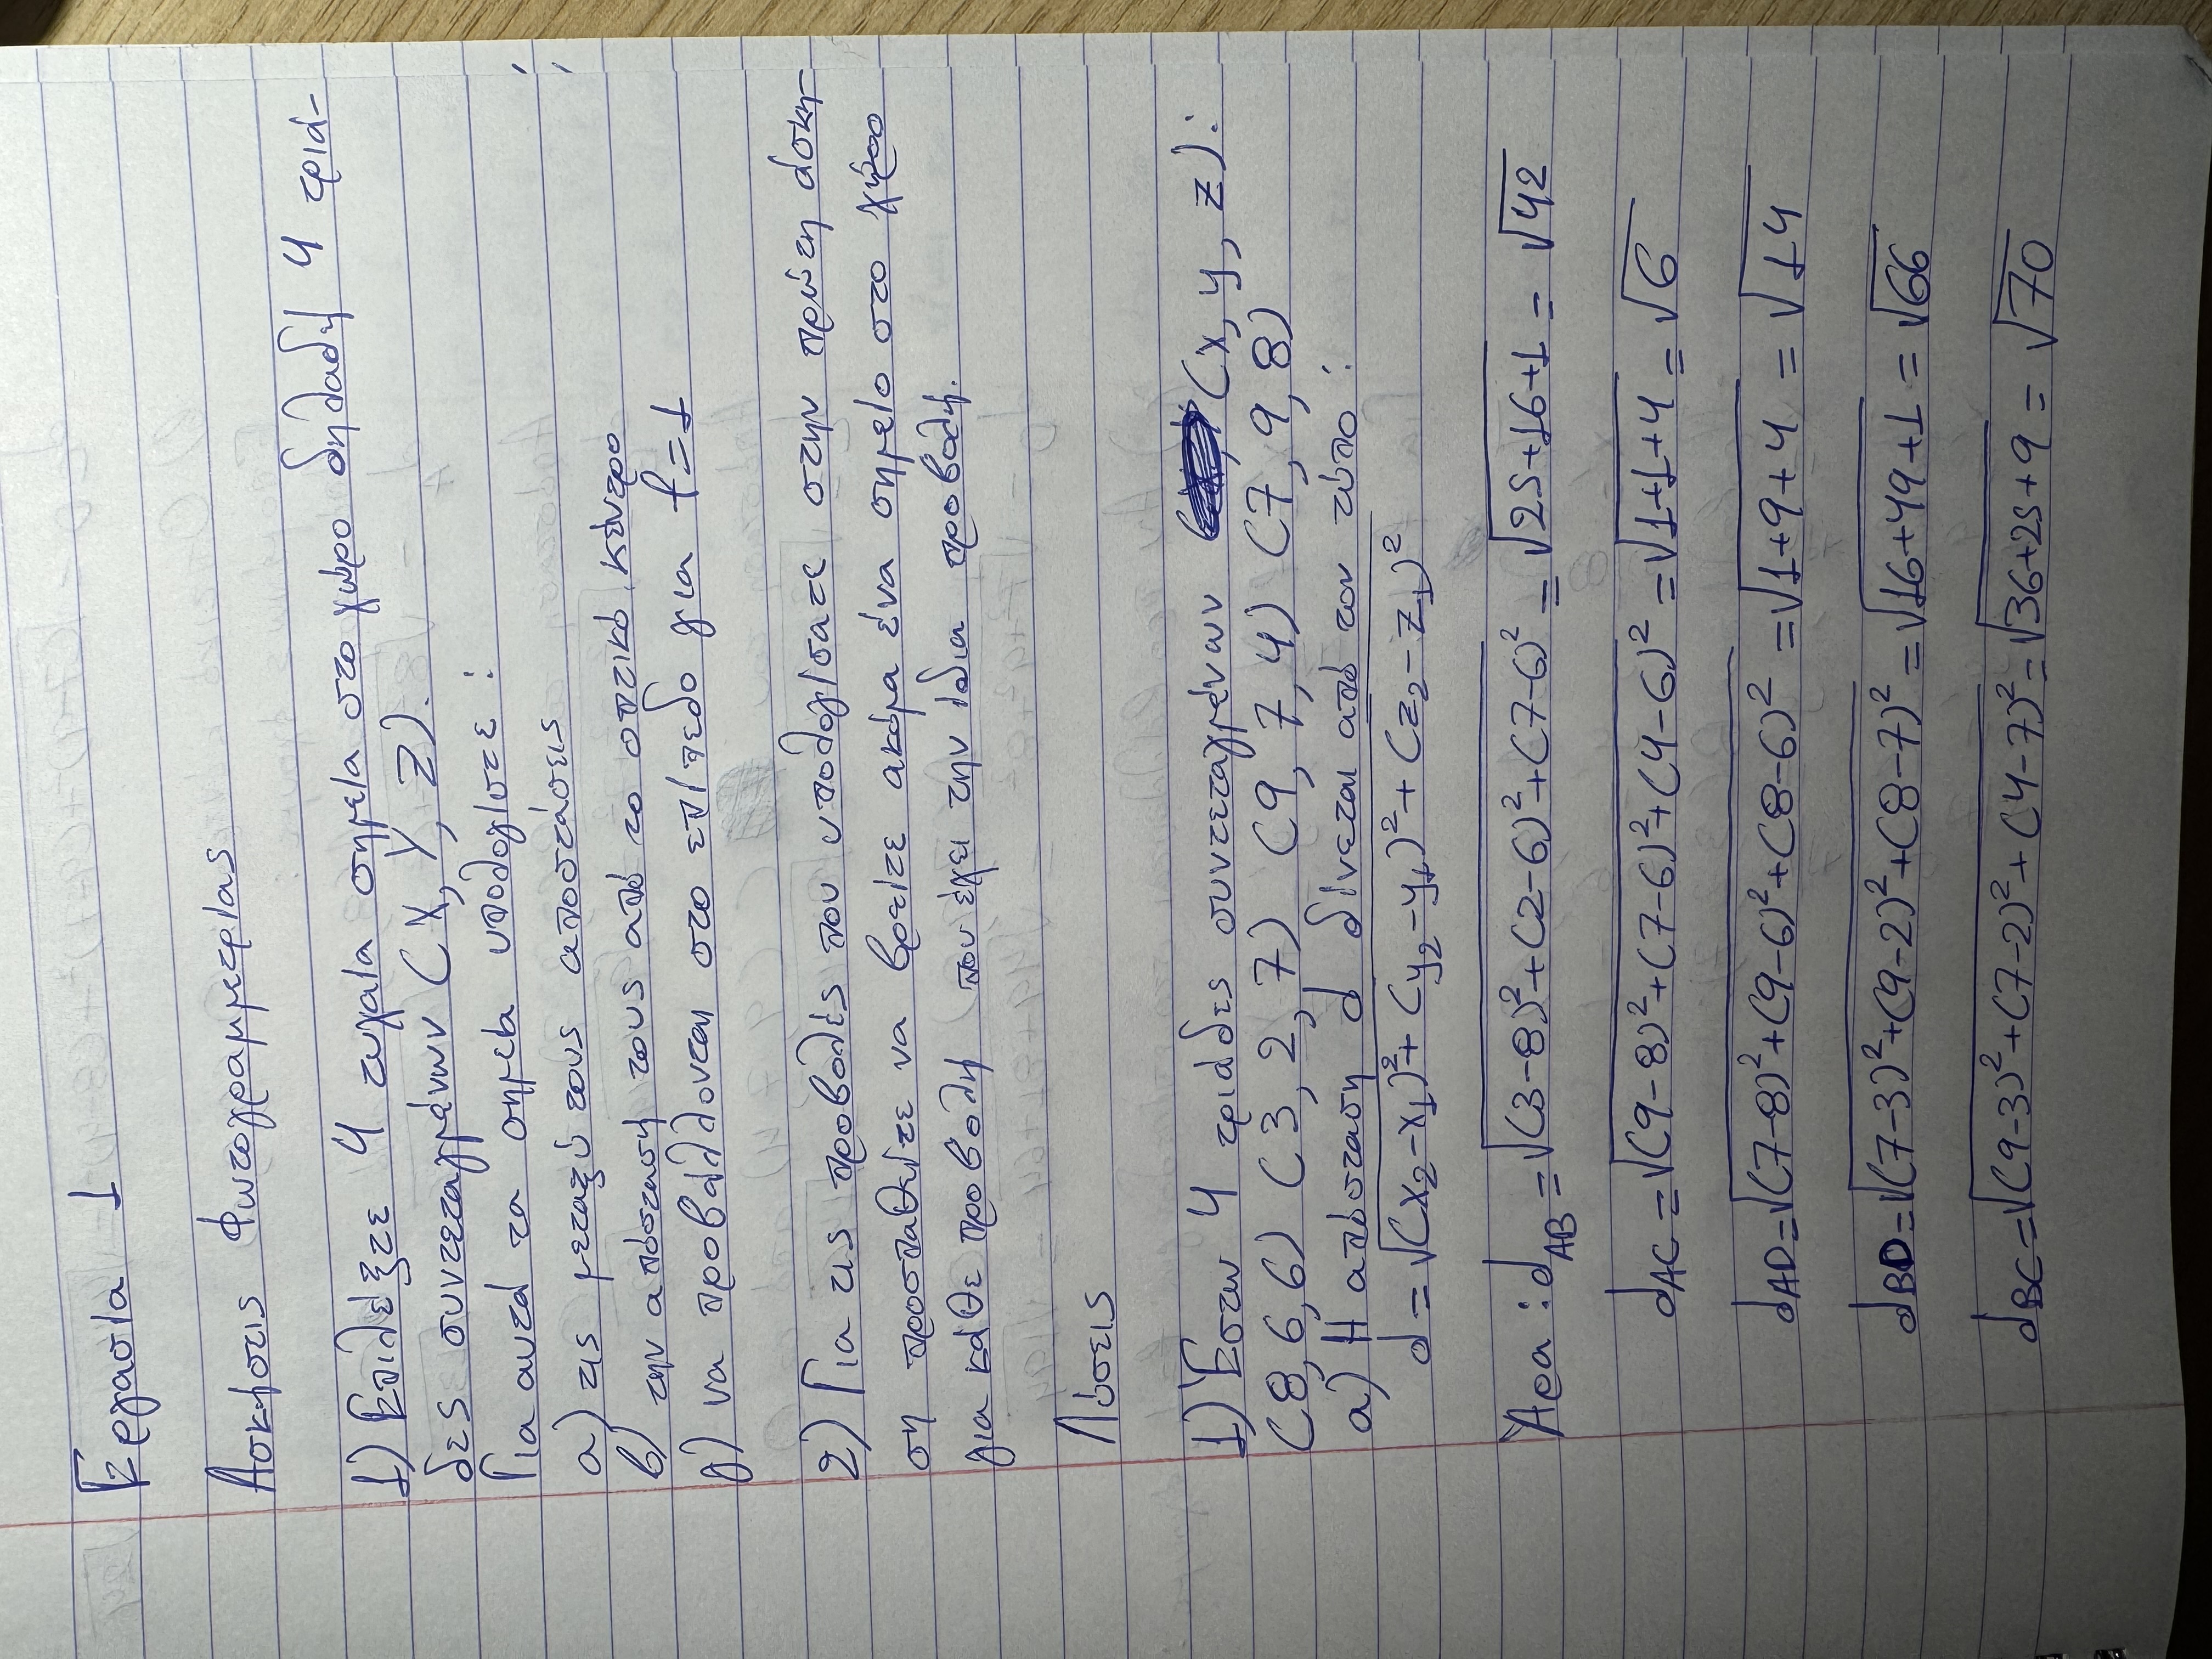 Εργασία 1
Ασκήσεις Φωτογραμμετρίας
1) Επιλέξτε 4 τυχαία σημεία στο χώρο δηλαδή 4 τριά-
δες συντεταγμένων (X, Y, Z).
Για αυτά τα σημεία υπολογίστε :
α) τις μεταξύ τους αποστάσεις
β) την απόσταση τους από το οπτικό κέντρο
γ) να προβάλλονται στο επίπεδο για f=1
2) Για τις προβολές που υπολογίσατε στην πρώτη άσκη-
ση προσπαθείτε να βρείτε ακόμα ένα σημείο στο χώρο
για κάθε προβολή που έχει την ίδια προβολή.
Λύσεις
1) Έστω 4 τριάδες συντεταγμένων (x, y, z):
(8,6,6) (3, 2, 7) (9, 7, 4) (7, 9, 8)
α) Η απόσταση d δίνεται από τον τύπο :
d = √(x₂-x₁)²+ (y₂-y₁)²+ (z₂-z₁)²
Άρα : d_AB = √(3-8)²+(2-6)²+(7-6)² = √25+16+1 = √42
d_AC = √(9-8)²+(7-6)²+(4-6)² = √1+1+4 = √6
d_AD = √(7-8)²+(9-6)²+(8-6)² = √1+9+4 = √14
d_BD = √(7-3)²+(9-2)²+(8-7)² = √16+49+1 = √66
d_BC = √(9-3)²+(7-2)²+(4-7)² = √36+25+9 = √70